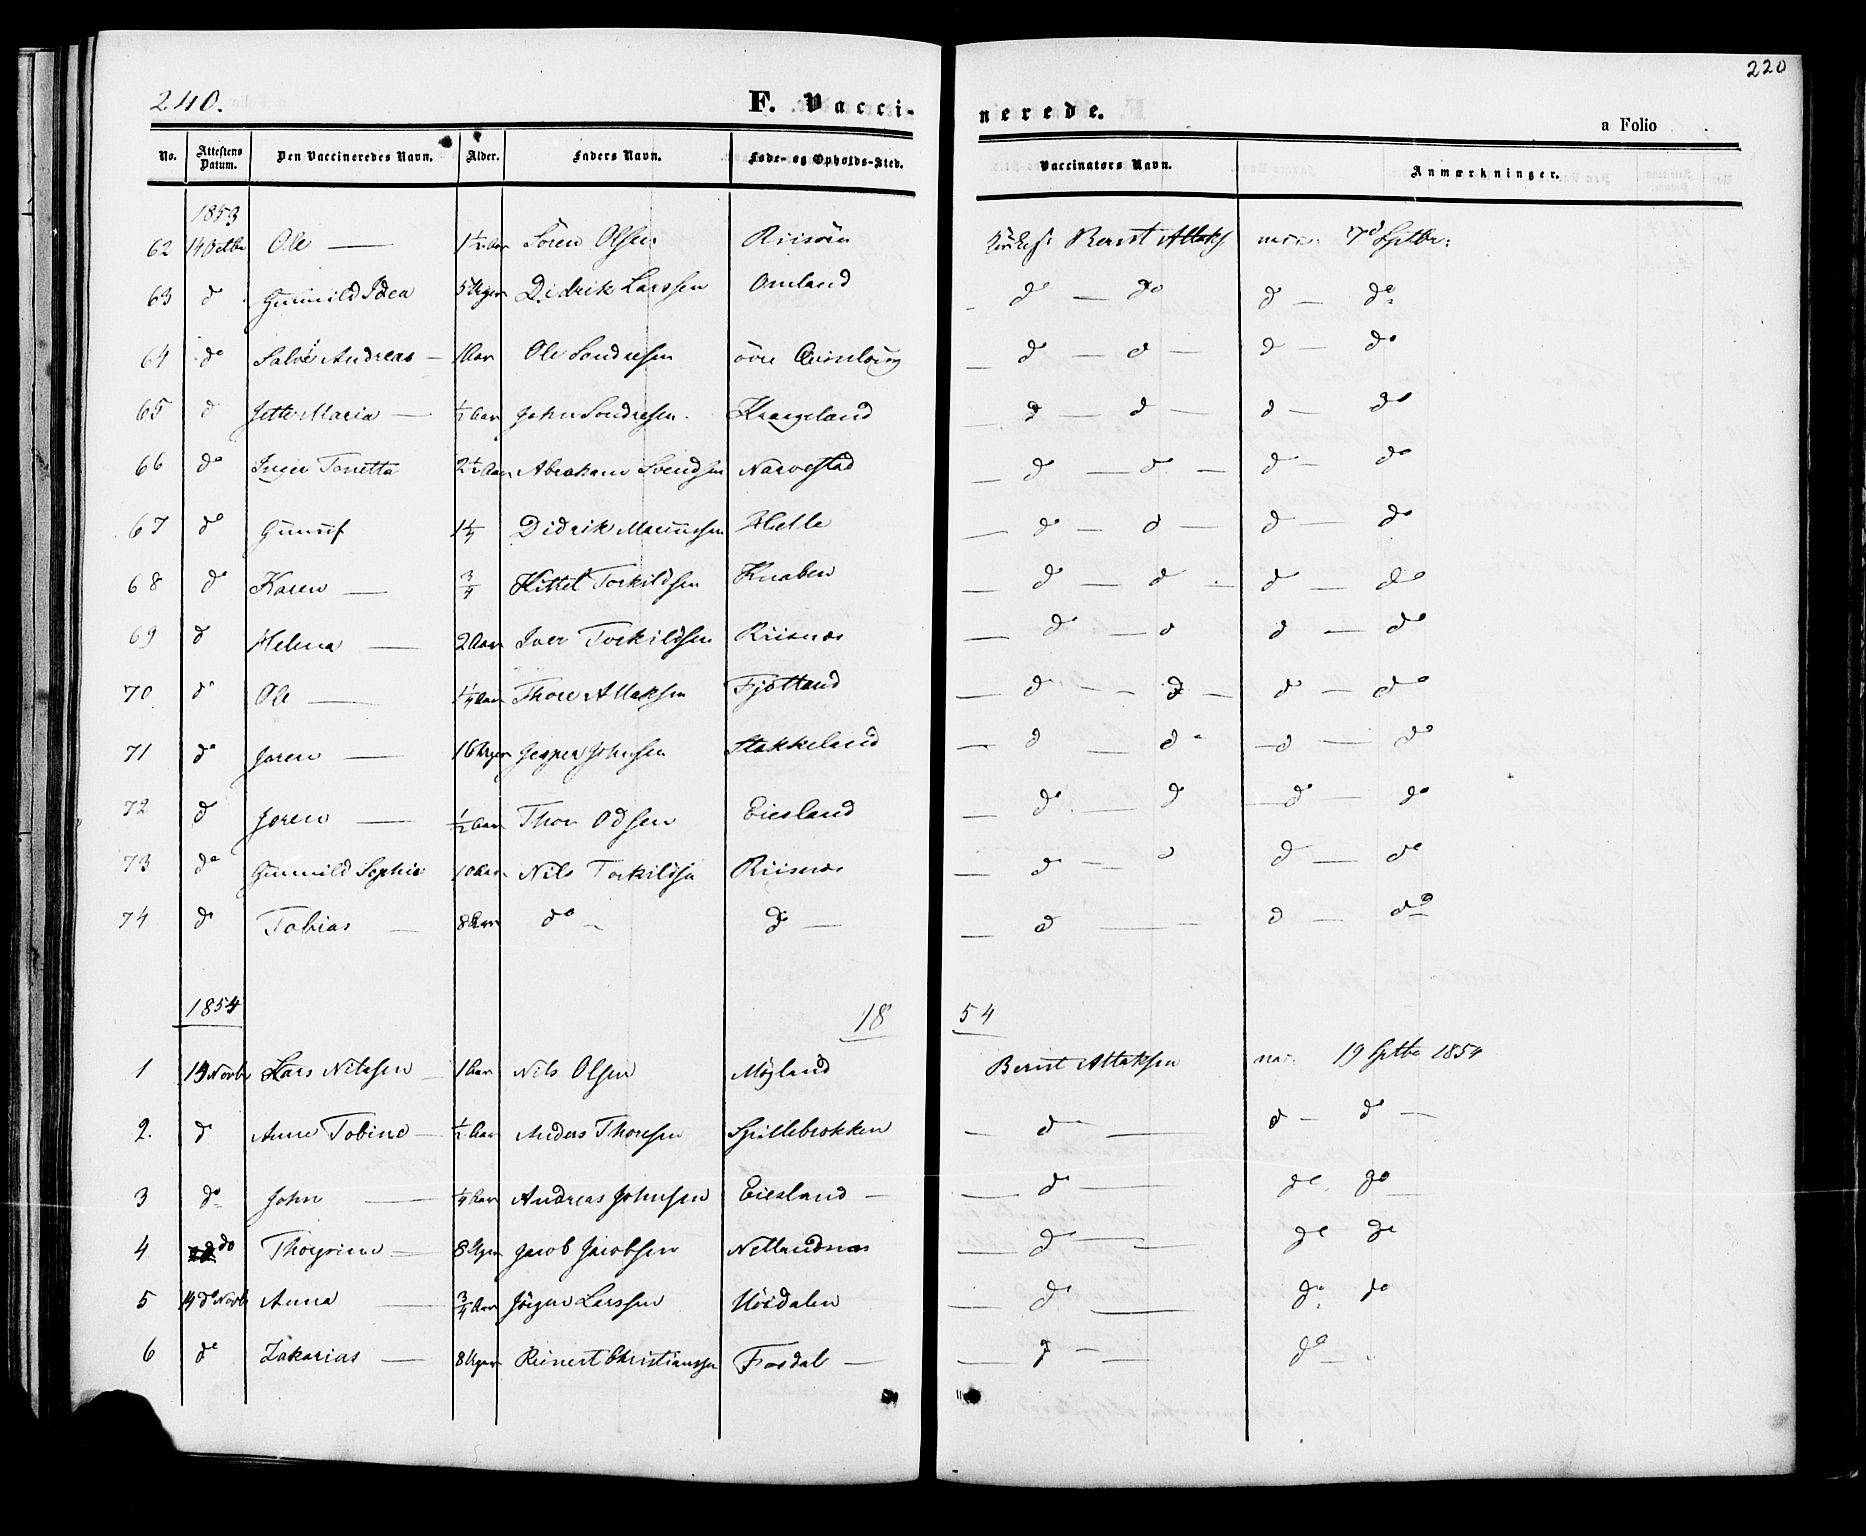 240.
220
F. Vaccinerede.
a Folio
No. Attestens Datum. Den Vaccineredes Navn. Alder. Faders Navn. Føde- og Opholds-Sted. Vaccinators Navn. Anmærkninger.
1853
62 14 Octbr Ole — 1½ Aar Sören Olsen Bernt Attaks. 7d Sptbr:
63 d Gunnild 5 Uger Didrik Larssen Omland d° — d° d — d°
64 d° Salve Andreas — 1 Aar Ole Sondresen övre d° — d — d — d°
65 d Jette Maria — ½ Aar John Sondresen. Krageland d — d — d — d°
66 d° Inger Tonetta 2½ Aar Abraham Svendsen Narvestad d° — d — d — d°
67 d° Gunuf 1¼ Didrik Marcussen Helle d° — d — d — d°
68 d° Karen — ¾ Kittel Torkildsen Knaben d° — d d — d°
69 d Helena — 2 Aar Iver Torkildsen Riisnes d° — d d — d°
70 d° Ole — 1¼ Aar Thore Attaksen Fjotland d° — d — d° — d°
71 d° Joren — 16 Uger Jesper Johnsen Stakkeland d — d° d — d°
72 d Joren — ½ Aar Thor Odsen Eiesland d° — d d° — d°
73 d° Gunnild Sophie 10 Aar Nils Torkildsn Riisnes d — d d — d°
74 d° Tobias — 8 Aar d° — d° — d — d — d°
1854
18 54
1 14 Novbr Lars Nilssen — 1 Aar Nils Olsen Mygland Bernt Attaksen 19 Sptbr 1854
2. d Anne Tobine — ½ Aar Anders Thoresen Spillebrokken d° — d — d° —
3 d° John — ¼ Aar Andreas Johnsen Eiesland — d° — d° d°
4 d° — 8 Uger Jacob Jacobsen Netlandnes d° — d° d°
5 14 d° Novbr Anna — ¾ Aar Jörgen Larssen d° — d° d°
6 d° Zakarias — 8 Uger Reinert Christianssen — d° — d° —